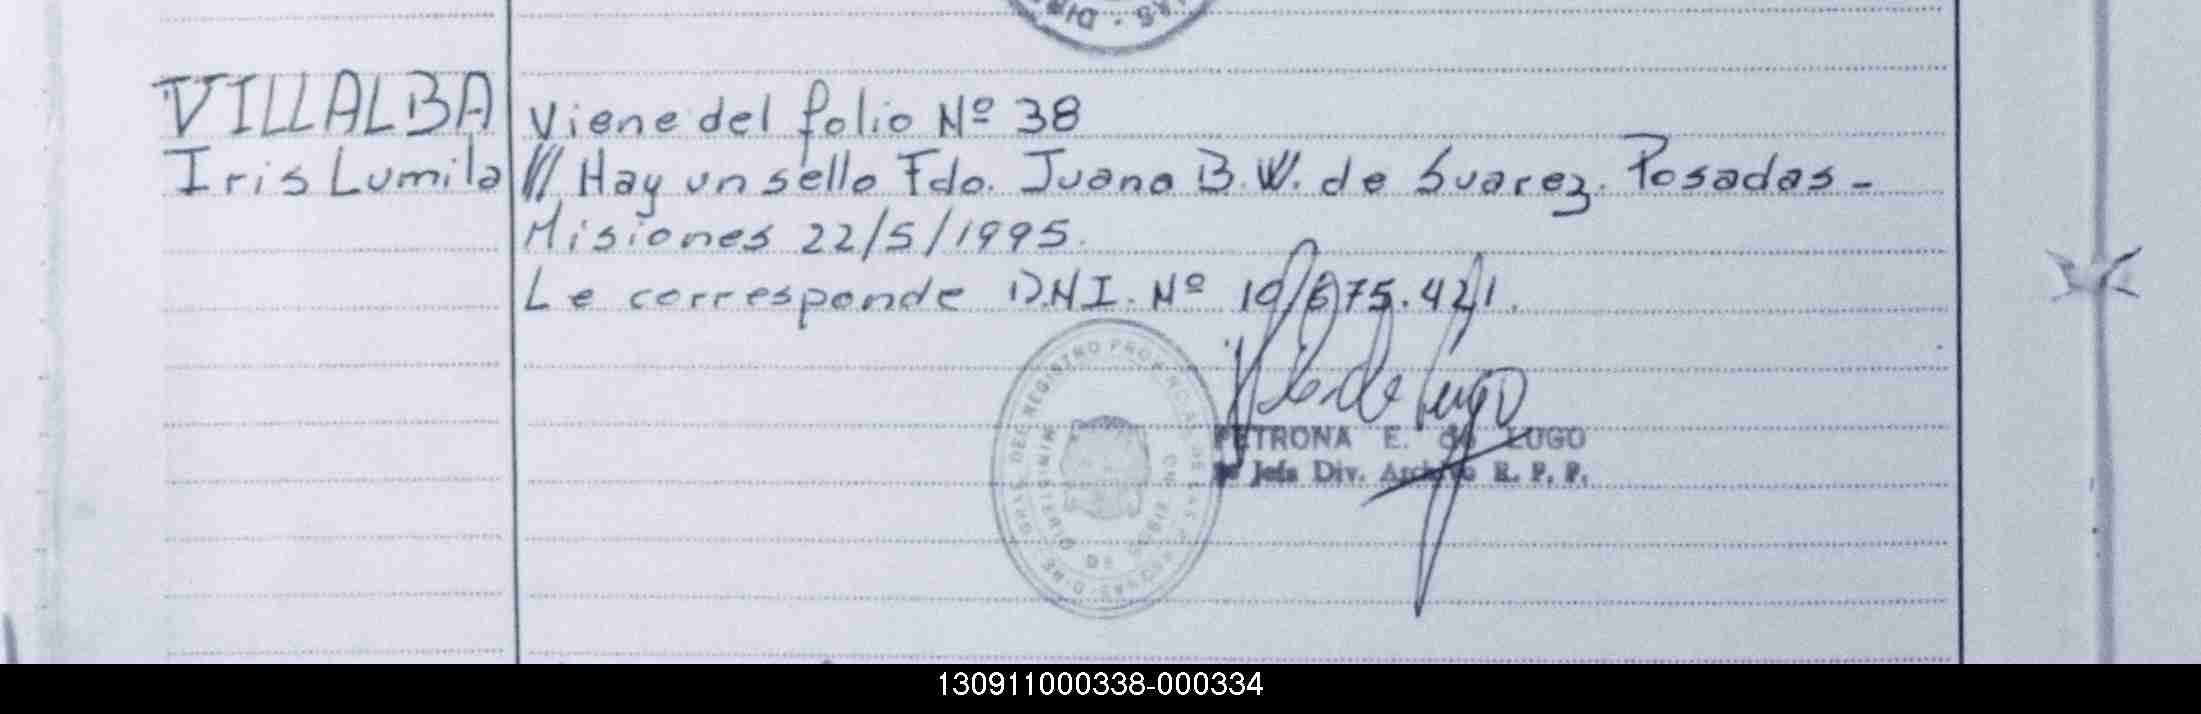 VILLALBA Viene del folio Nº 38
Iris Lumila /// Hay un sello Fdo. Juana B. W. de Suarez. Posadas -
Misiones 22/5/1995.
Le corresponde D.N.I. Nº 10.675.421.
REGISTRO PROVINCIAL DE LAS PERSONAS
PETRONA E. de LUGO
Jefa Div. Archivo R. P. P.
130911000338-000334